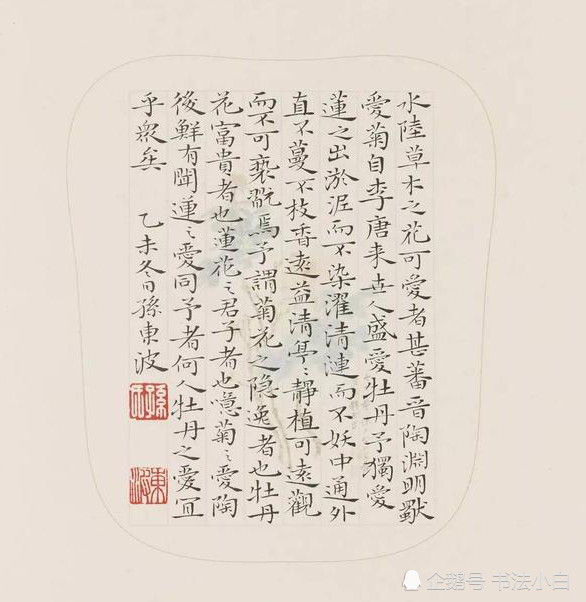 水陸草木之花可愛者甚蕃晋陶淵明獨
愛菊自李唐来世人盛愛牡丹予獨愛
蓮之出淤泥而不染濯清漣而不妖中通外
直不蔓不枝香遠益清亭〻靜植可遠觀
而不可褻翫焉予謂菊花之隐逸者也牡丹
花富貴者也蓮花〻君子者也噫菊〻愛陶
後鮮有聞蓮〻愛同予者何人牡丹之愛宜
乎衆矣 乙未冬日孫東波
企鹅号 书法小白